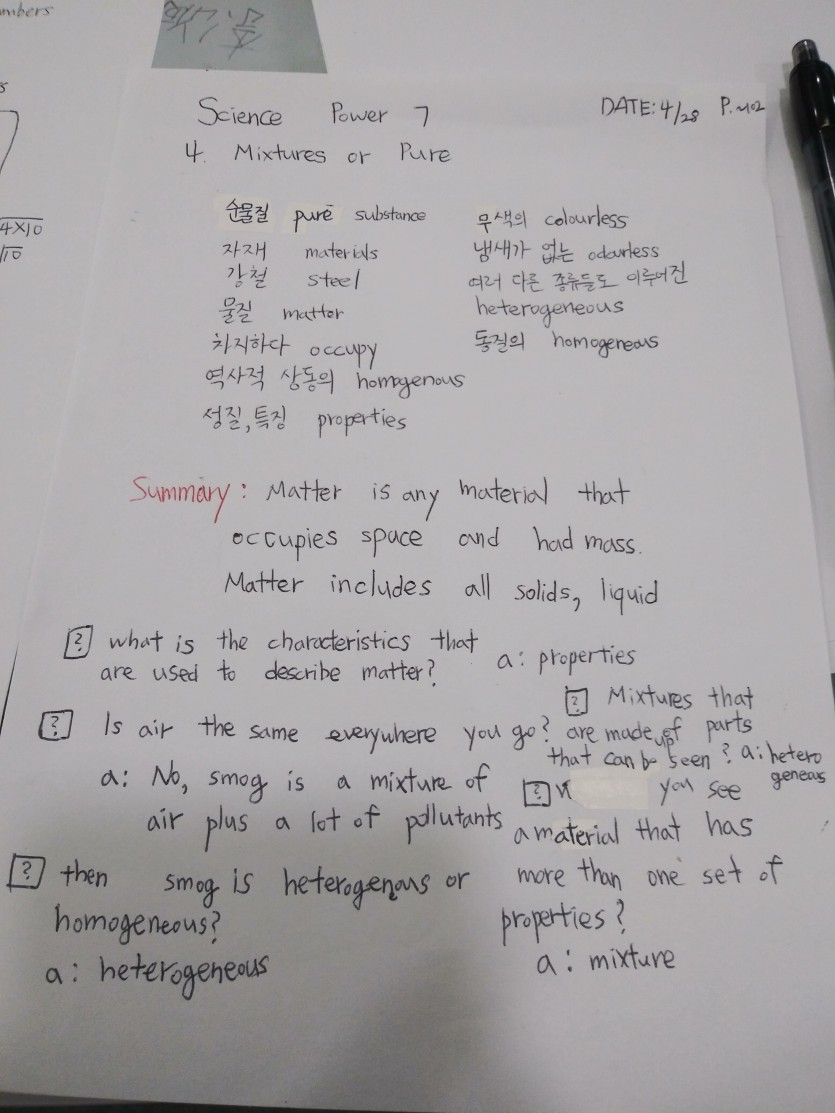 mbers
s
4×10
10
Science Power 7
DATE: 4/28 P.402
4. Mixtures or Pure
순물질 pure substance
자재 materials
강철 steel
물질 matter
차지하다 occupy
역사적 상동의 homogenous
성질, 특징 properties
무색의 colourless
냄새가 없는 odourless
여러 다른 종류들도 이루어진
heterogeneous
동질의 homogeneous
Summary: Matter is any material that
occupies space and had mass.
Matter includes all solids, liquid
? what is the characteristics that
are used to describe matter?
a: properties
? Is air the same everywhere you go?
a: No, smog is a mixture of
air plus a lot of pollutants
? then smog is heterogenous or
homogeneous?
a: heterogeneous
? Mixtures that
are made up of parts
that can be seen? a: hetero
geneous
? you see
a material that has
more than one set of
properties?
a: mixture